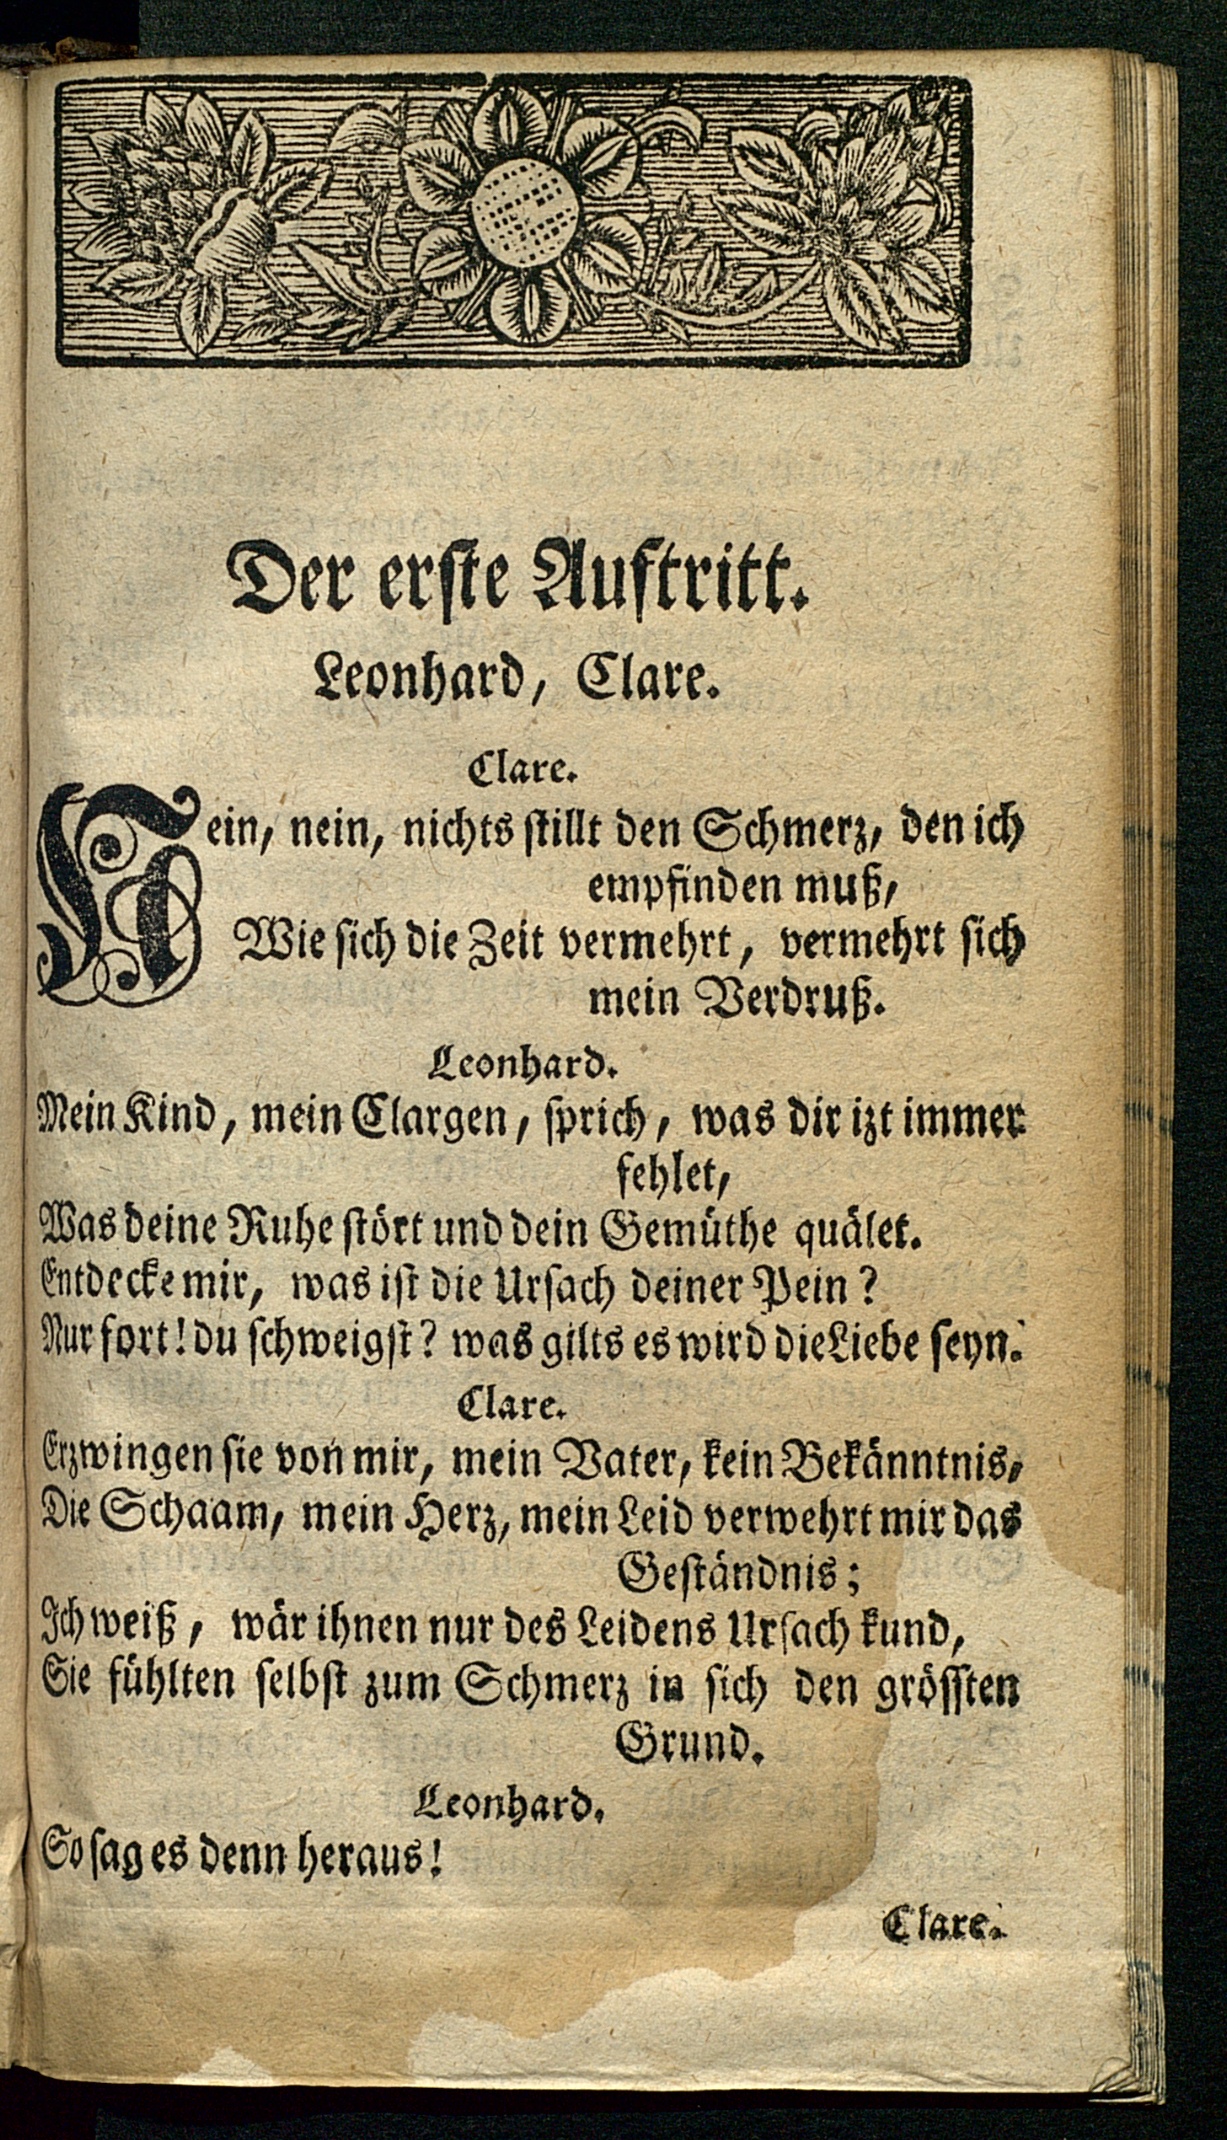 Der erste Auftritt.
Leonhard, Clare.
Clare.
Nein, nein, nichts stillt den Schmerz, den ich
empfinden muß,
Wie sich die Zeit vermehrt, vermehrt sich
mein Verdruß.
Leonhard.
Mein Kind, mein Clargen, sprich, was dir izt immer
fehlet,
Was deine Ruhe stört und dein Gemüthe quälet.
Entdecke mir, was ist die Ursach deiner Pein?
Nur fort! du schweigst? was gilts es wird die Liebe seyn.
Clare.
Erzwingen sie von mir, mein Vater, kein Bekänntnis,
Die Schaam, mein Herz, mein Leid verwehrt mir das
Geständnis;
Ich weiß, wär ihnen nur des Leidens Ursach kund,
Sie fühlten selbst zum Schmerz in sich den grössten
Grund.
Leonhard.
So sag es denn heraus!
Clare.